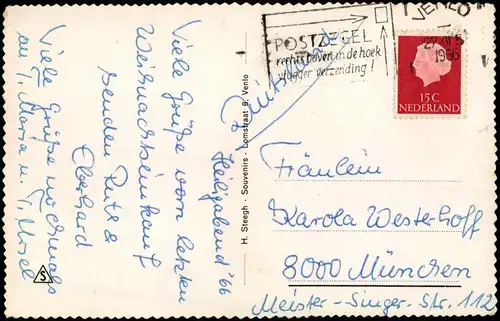 Heiligabend '66
Viele Grüße vom letzten
Weihnachtseinkauf
senden Rute &
Eberhard
Viele Grüße nochmals
an Tr. Maria u. Tr. Ursel
S
H. Steegh - Souvenirs - Lomstraat 8, Venlo
POSTZEGEL
rechts boven in de hoek
vlugger verzending
VENLO
1966
15C
NEDERLAND
Fräulein
Karola Westerhoff
8000 München
Meister-Singer-Str. 112